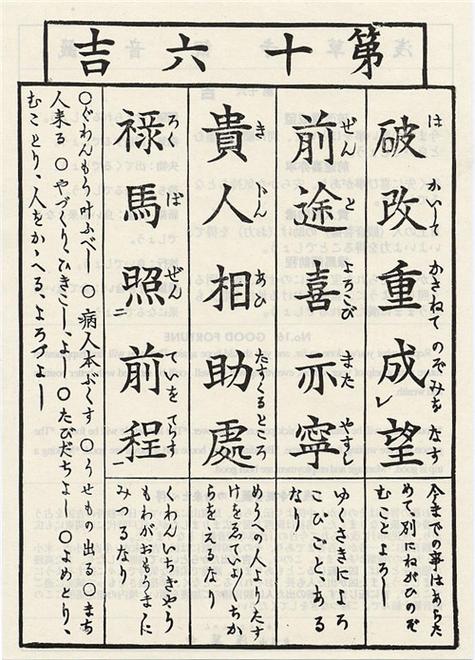 第十六吉
は かいして かさねて のぞみを なす
破改重成レ望
今までの事はあらた
めて別にねがひのぞ
むことよろし
ぜん と よろこび また やすし
前途喜亦寧
ゆくさきによろ
こひごとある
なり
き にん あひ たすくるところ
貴人相助處
めうへの人よりたす
けをゑていよくちか
らをえるなり
ろく ば ぜん ていを てらす
禄馬照二前程一
くわんいちきやう
もわがおもうまゝに
みつるなり
○ぐわんもう叶ふべし ○病人本ぶくす ○うせもの出る ○まち
人来る ○やづくり、ひきこしよし ○たびだちよし ○よめとり、
むことり、人をかゝへる、よろづよし